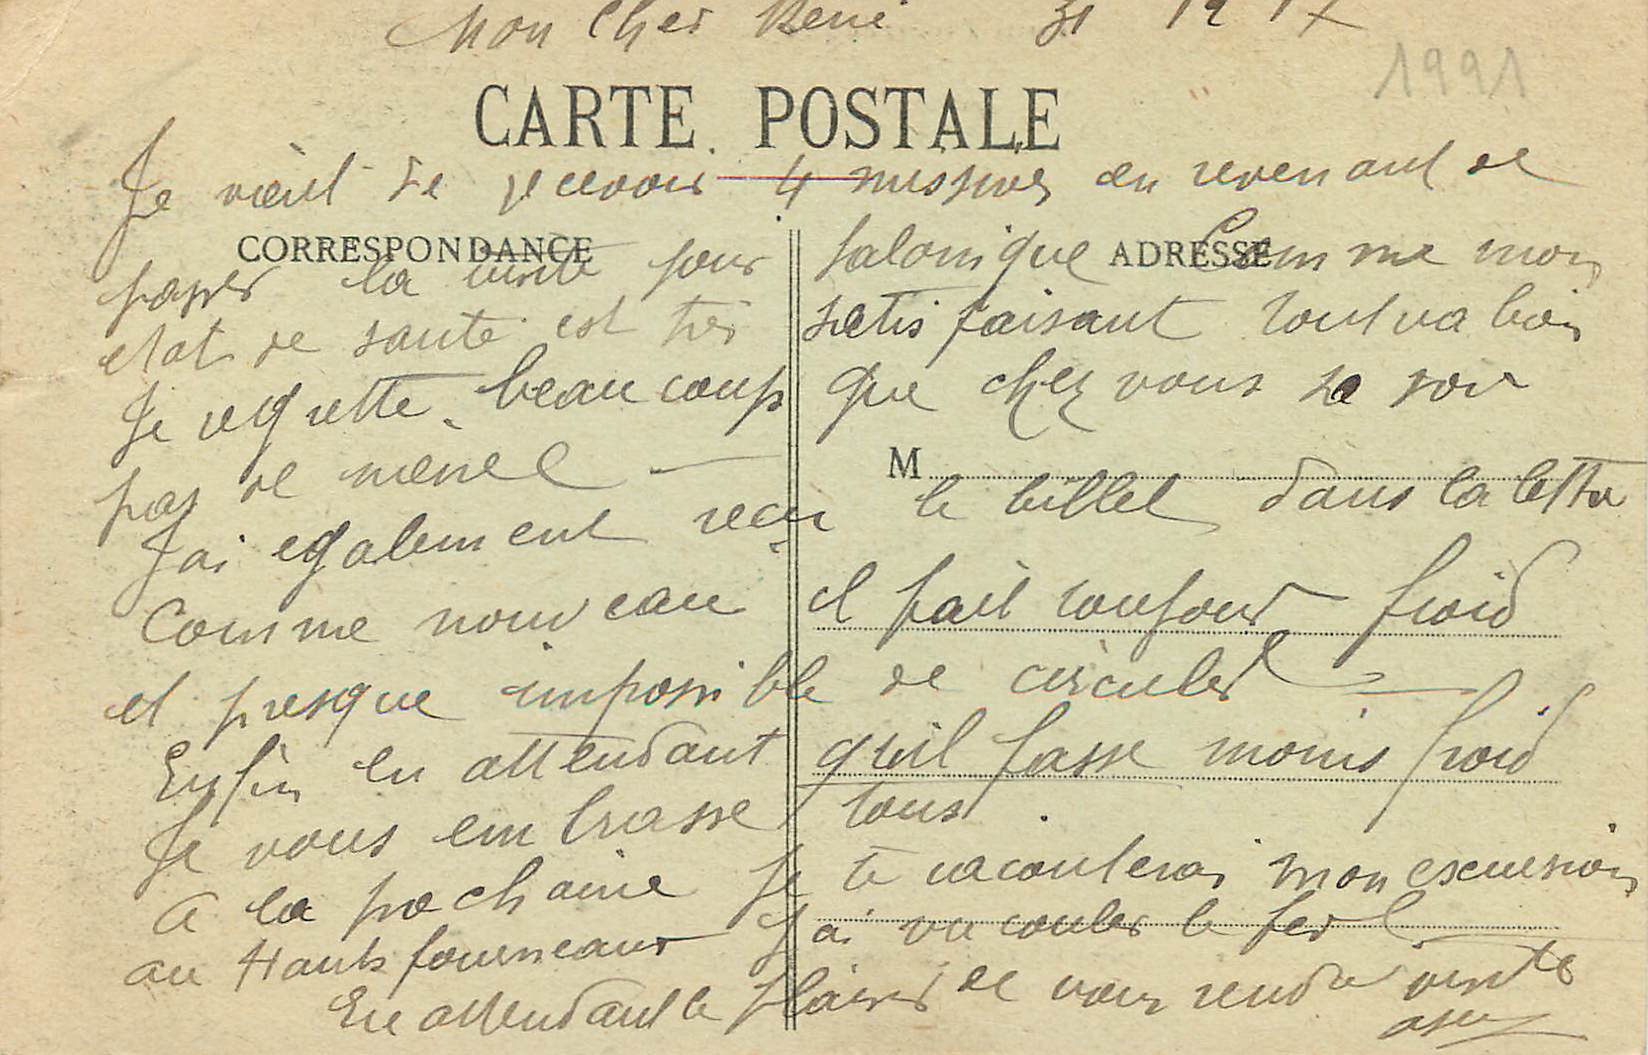 Mon Cher René 31 1917
1991
CARTE POSTALE
Je vient de recevoir 4 missives en revenant de
CORRESPONDANCE
ADRESSE
passer la visite pour Salonique Comme mon
etat de santé est très satisfaisant tout va bien
Je regrette beaucoup que chez vous se soit
pas de meme
M
J'ai egalement reçu le billet dans la lettre
Comme nouveau il fait toujours froid
et presque impossible de circuler
Enfin en attendant qu'il fasse moins froid
Je vous embrasse tous
A la prochaine Je te raconterai mon excursion
au Hauts fourneaux J'ai vu couler le fer
En attendant le plaisir de vous rendre visite